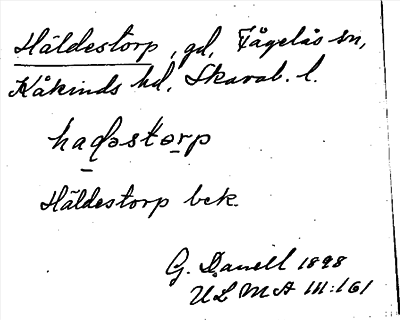 Häldestorp, gd, Fågelås sn,
Kåkinds hd, Skarab. l.
haḍəstərp
Häldestorp bek.
G. Danell 1898
ULMA 111:161